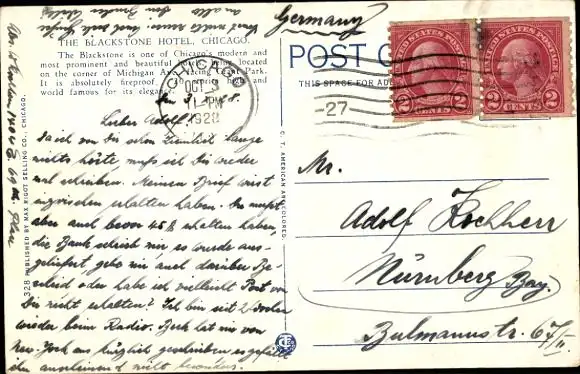 Germany
THE BLACKSTONE HOTEL, CHICAGO.
The Blackstone is one of Chicago's modern and
most prominent and beautiful hotels, being located
on the corner of Michigan Ave. facing Park.
It is absolutely fireproof and
world famous for its elegance
POST CA
THIS SPACE FOR AD
CHICAGO
OCT 3
PM
1928
-27
UNITED STATES POSTAGE
2 CENTS 2
UNITED STATES POSTAGE
2 CENTS 2
Lieber Adolf!
Da ich von dir schon ziemlich lange
nichts hörte muß ich dir wieder
mal schreiben. Meinen Brief wirst
inzwischen erhalten haben. Du mußt
aber auch bevor 45 $ erhalten haben,
die Bank schrieb mir, es wurde aus-
geliefert, gebe mir auch darüber Be-
scheid oder habe ich vielleicht Post von
Dir nicht erhalten? Ich bin seit 2 Wochen
wieder beim Radio. hat mir von
New-York aus kürzlich geschrieben es gefällt
ihm anscheinend nicht besonders.
328 PUBLISHED BY MAX RIGOT SELLING CO., CHICAGO.
C. T. AMERICAN ART COLORED
Mr.
Adolf Kochherr
Nürnberg Bay.
Bulmannstr. 67/II